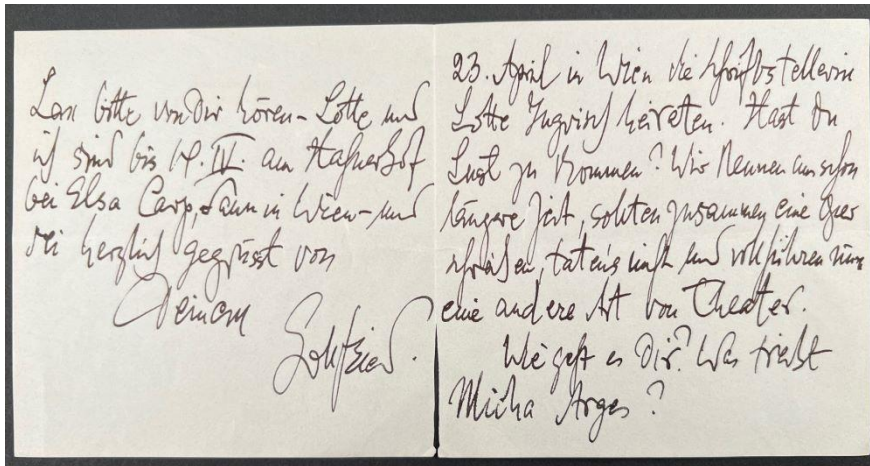 Lass bitte von Dir hören - Lotte und
ich sind bis IV. am Hafnerhof
bei Elsa Carp, dann in Wien - und
sei herzlich gegrüsst von
Deinem
Gottfried.
23. April in Wien die Schriftstellerin
Lotte Ingrisch heiraten. Hast Du
Lust zu kommen? Wir kennen uns schon
längere Zeit, sollten zusammen eine Oper
schreiben, taten's nicht und vollführen nun
eine andere Art von Theater.
Wie geht es Dir? Was treibt
Micha Arges?